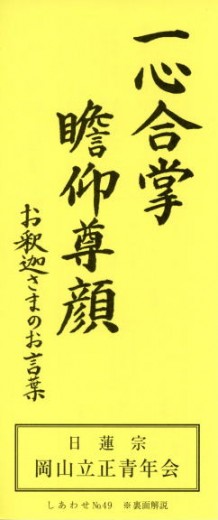 一心合掌
瞻仰尊顔
お釈迦さまのお言葉
日蓮宗
岡山立正青年会
しあわせ№49 ※裏面解説